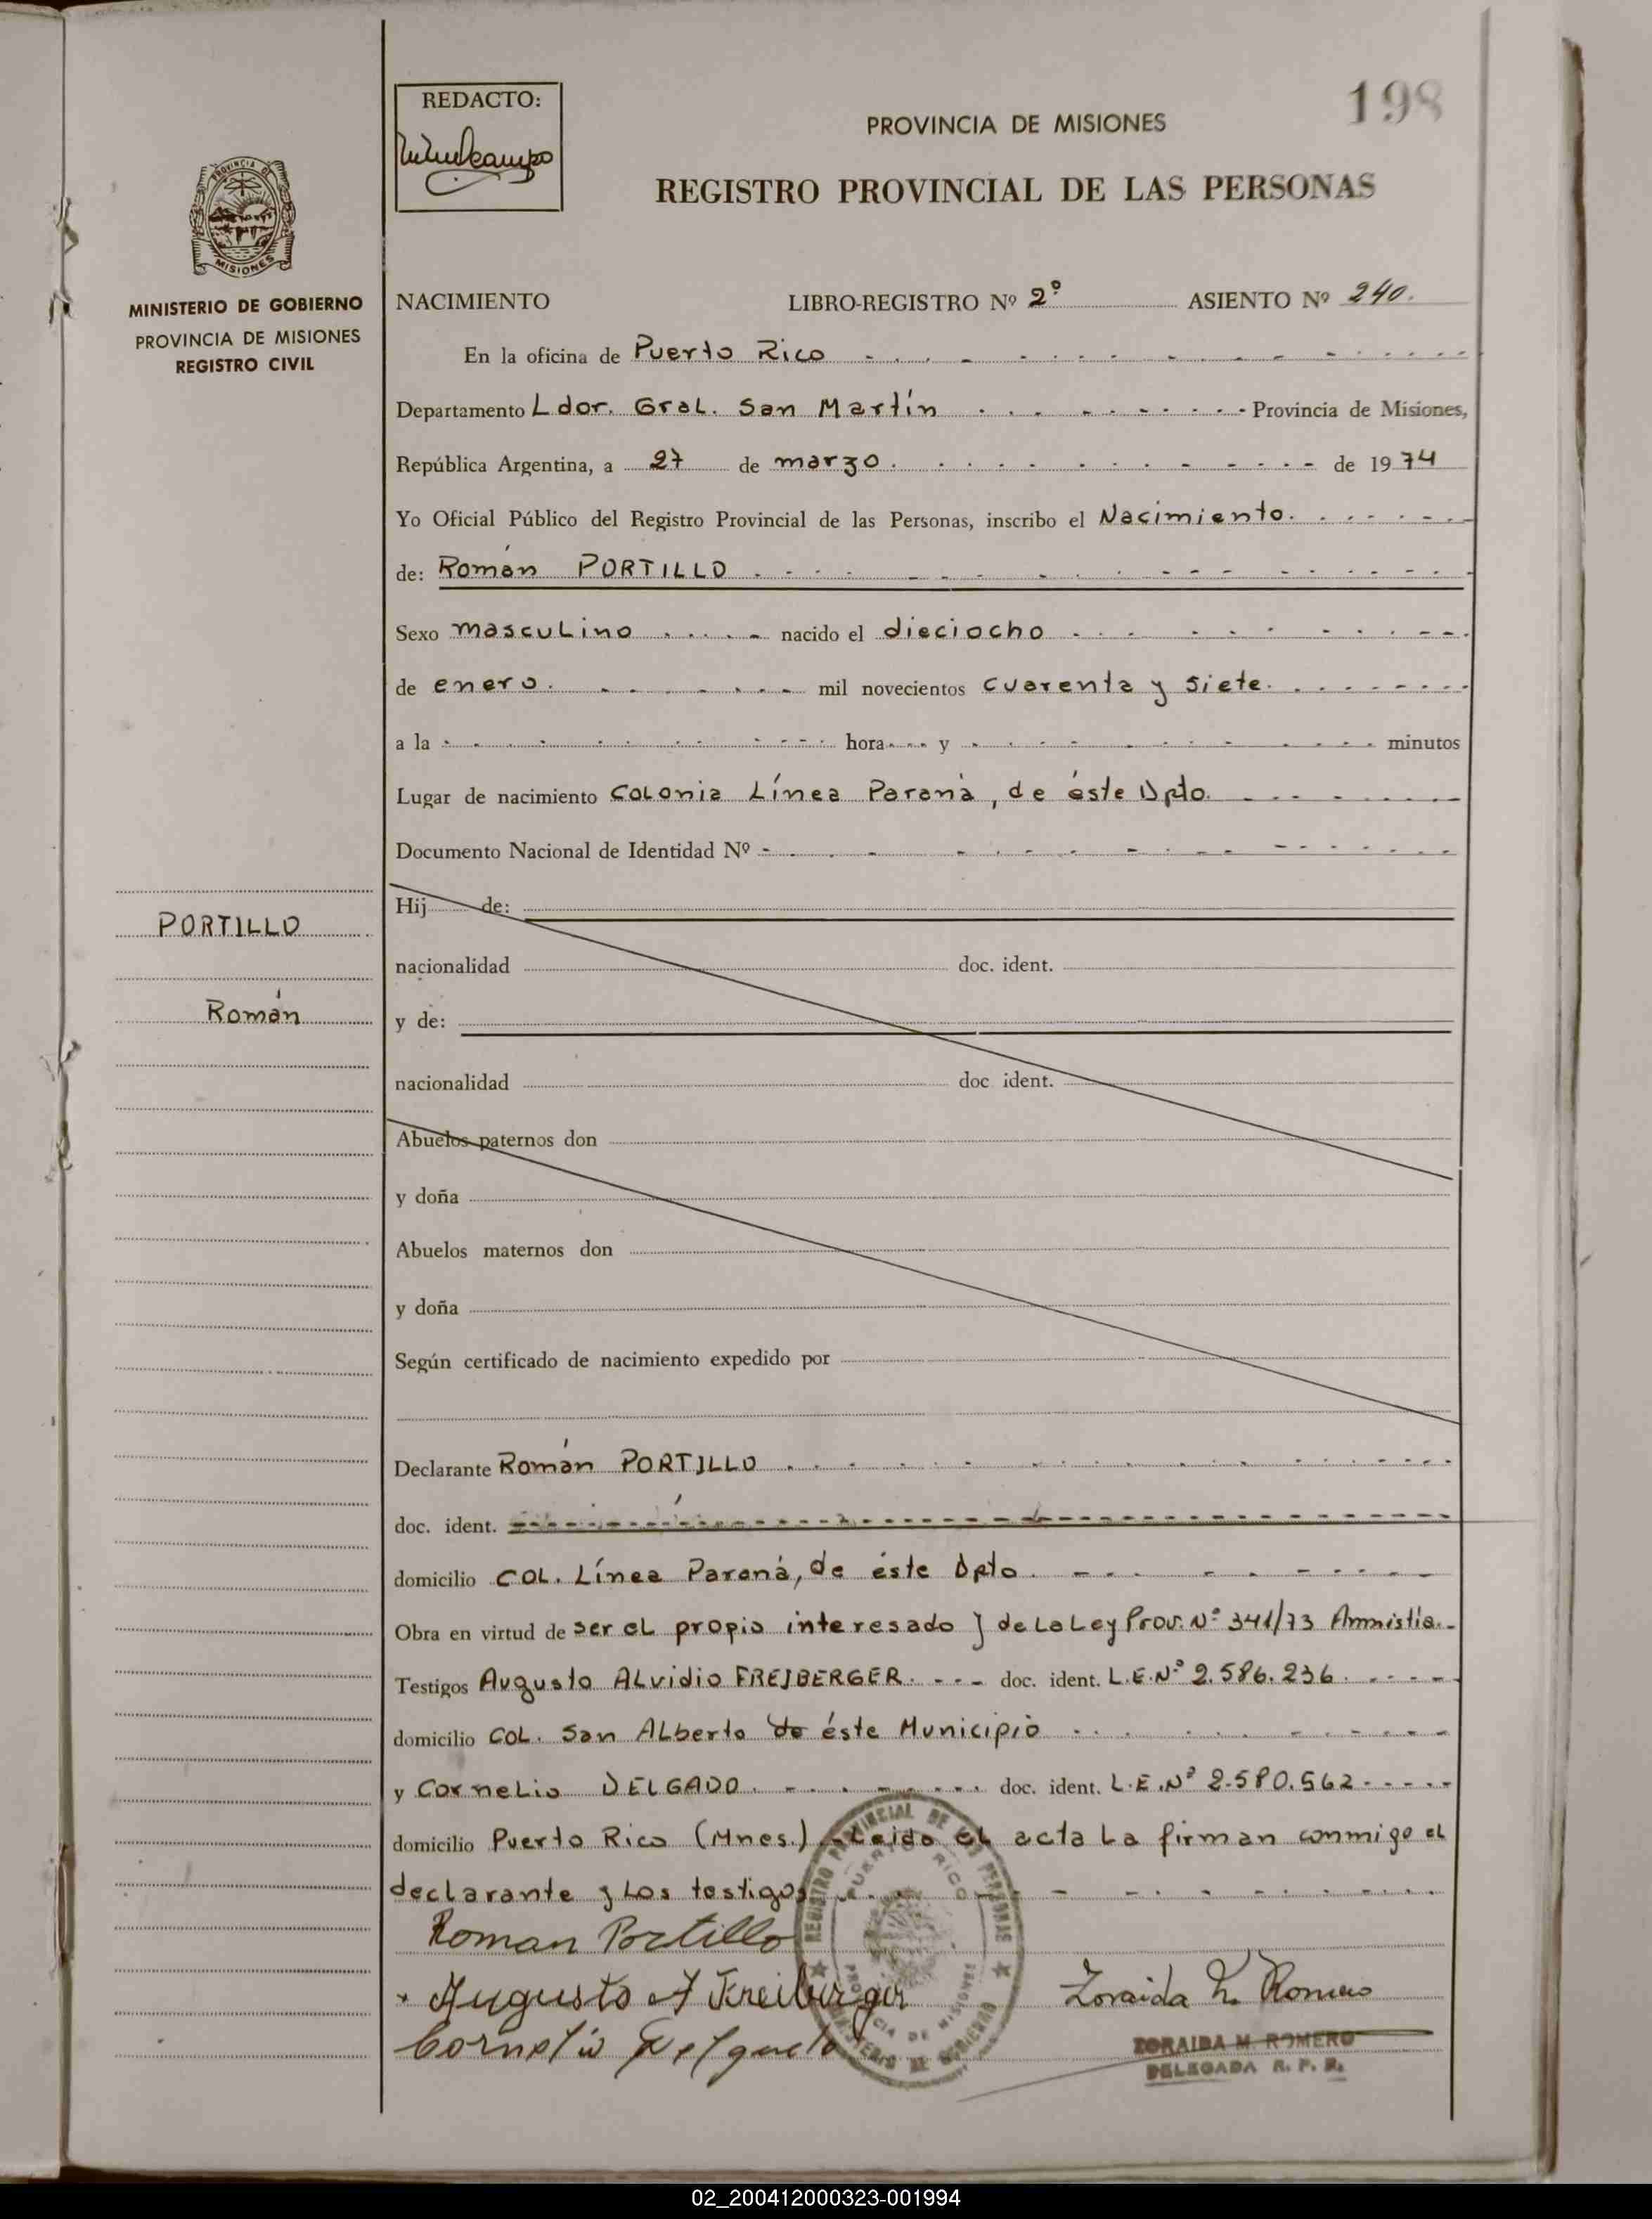 198
REDACTO:
PROVINCIA DE MISIONES
REGISTRO PROVINCIAL DE LAS PERSONAS
PROVINCIA DE
MISIONES
MINISTERIO DE GOBIERNO
PROVINCIA DE MISIONES
REGISTRO CIVIL
NACIMIENTO LIBRO-REGISTRO Nº 2º ASIENTO Nº 240.
En la oficina de Puerto Rico
Departamento Ldor. Gral. San Martín Provincia de Misiones,
República Argentina, a 27 de marzo. de 1974
Yo Oficial Público del Registro Provincial de las Personas, inscribo el Nacimiento.
de: Román PORTILLO
Sexo masculino nacido el dieciocho
de enero. mil novecientos cuarenta y siete.
a la hora y minutos
Lugar de nacimiento Colonia Línea Paraná, de éste Dpto.
Documento Nacional de Identidad Nº
Hij de:
PORTILLO
nacionalidad doc. ident.
Román
y de:
nacionalidad doc ident.
Abuelos paternos don
y doña
Abuelos maternos don
y doña
Según certificado de nacimiento expedido por
Declarante Román PORTILLO
doc. ident.
domicilio COL. Línea Paraná, de éste Dpto.
Obra en virtud de ser el propio interesado y de la Ley Prov. Nº 341/73 Amnistía.
Testigos Augusto Alvidio FREIBERGER. doc. ident. L.E.Nº 2.586.236.
domicilio COL. San Alberto de éste Municipio
y Cornelio DELGADO. doc. ident. L.E.Nº 2.580.562
domicilio Puerto Rico (Mnes.) Leido el acta la firman conmigo el
declarante y los testigos
Roman Portillo
Augusto A Freiberger
Zoraida M. Romero
Cornelio Delgado
REGISTRO PROVINCIAL DE LAS PERSONAS
PUERTO RICO
PROVINCIA DE MISIONES
MINISTERIO DE GOBIERNO
ZORAIDA M. ROMERO
DELEGADA R. P. P.
02_200412000323-001994